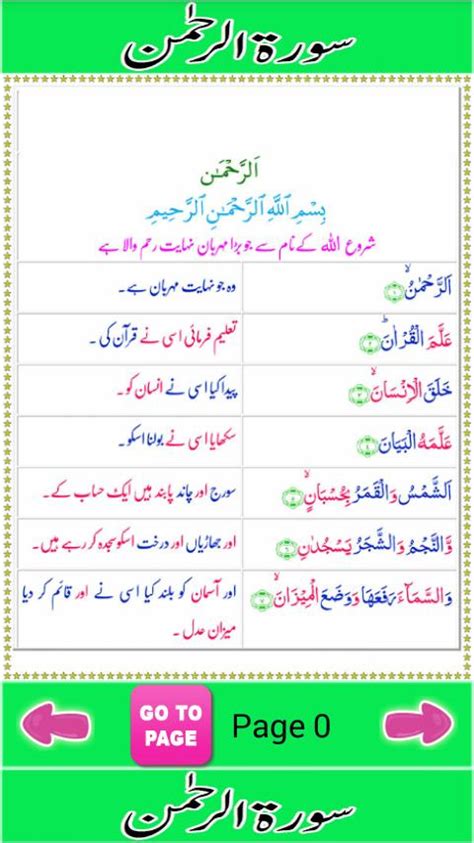 سورۃ الرحمٰن
اَلرَّحْمٰن
بِسْمِ اللَّهِ الرَّحْمَٰنِ الرَّحِيمِ
شروع اللہ کے نام سے جو بڑا مہربان نہایت رحم والا ہے
اَلرَّحْمٰنُۙ ﴿۱﴾ وہ جو نہایت مہربان ہے۔
عَلَّمَ الْقُرْاٰنَؕ ﴿۲﴾ تعلیم فرمائی اسی نے قرآن کی ۔
خَلَقَ الْاِنْسَانَۙ ﴿۳﴾ پیدا کیا اسی نے انسان کو ۔
عَلَّمَهُ الْبَيَانَ ﴿۴﴾ سکھایا اسی نے بولنا اسکو ۔
اَلشَّمْسُ وَالْقَمَرُ بِحُسْبَانٍۙ ﴿۵﴾ سورج اور چاند پابند ہیں ایک حساب کے۔
وَّالنَّجْمُ وَالشَّجَرُ يَسْجُدٰنِ ﴿۶﴾ اور جھاڑیاں اور درخت اسکو سجدہ کر رہے ہیں۔
وَالسَّمَآءَ رَفَعَهَا وَوَضَعَ الْمِيْزَانَۙ ﴿۷﴾ اور آسمان کو بلند کیا اسی نے اور قائم کر دیا
میزان عدل ۔
GO TO
PAGE
Page 0
سورۃ الرحمٰن